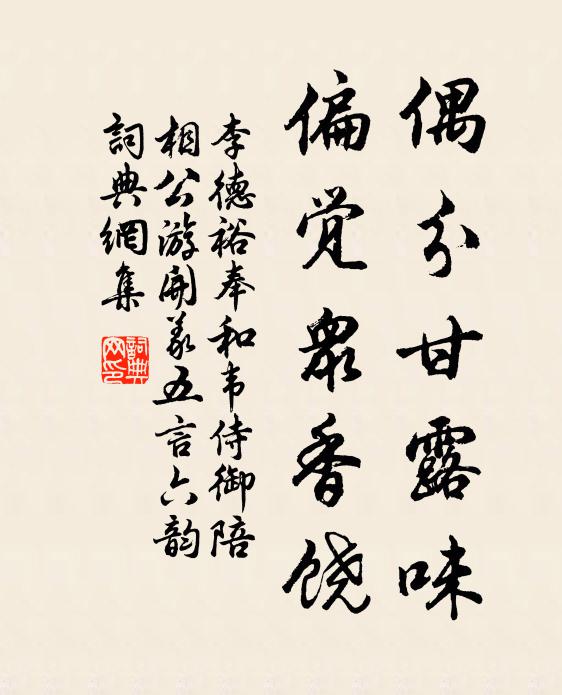 偶分甘露味
偏觉眾香饶
李德裕奉和韦侍御陪
相公游開義五言六韵
詞典網集
詞典网印